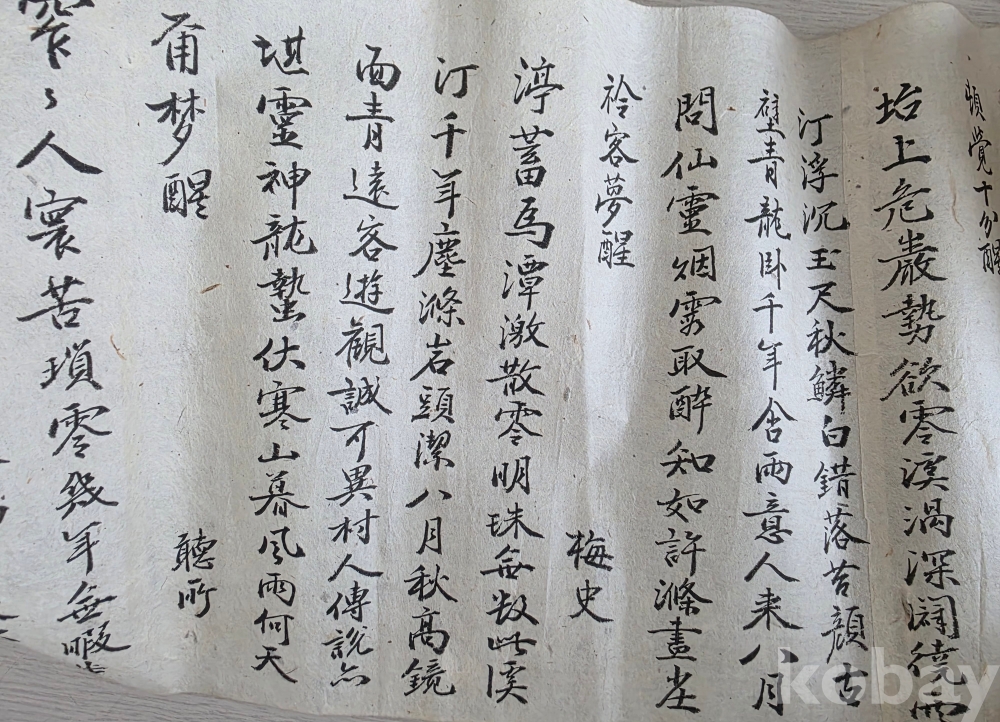 頓覺十分醒
坮上危巖勢欲零溪渦深濶繞
汀浮沉玉尺秋鱗白錯落苔顔古
壁青龍卧千年含雨意人来八月
問仙靈烟雲取醉知如許滌盡塵
衿客夢醒
梅史
渟蓄為潭激散零明珠無数此溪
汀千年塵滌岩頭潔八月秋高鏡
面青遠客遊觀誠可異村人傳説亦
堪靈神龍蟄伏寒山暮風雨何天
甬梦醒
聽所
寥々人寰苦瑣零幾年無暇
kobay